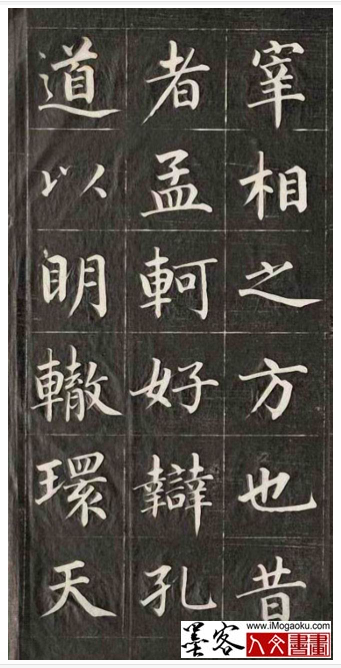 宰相之方也昔
者孟軻好辯孔
道以眀轍環天
www.iMogaoku.com
墨客
人文書畫